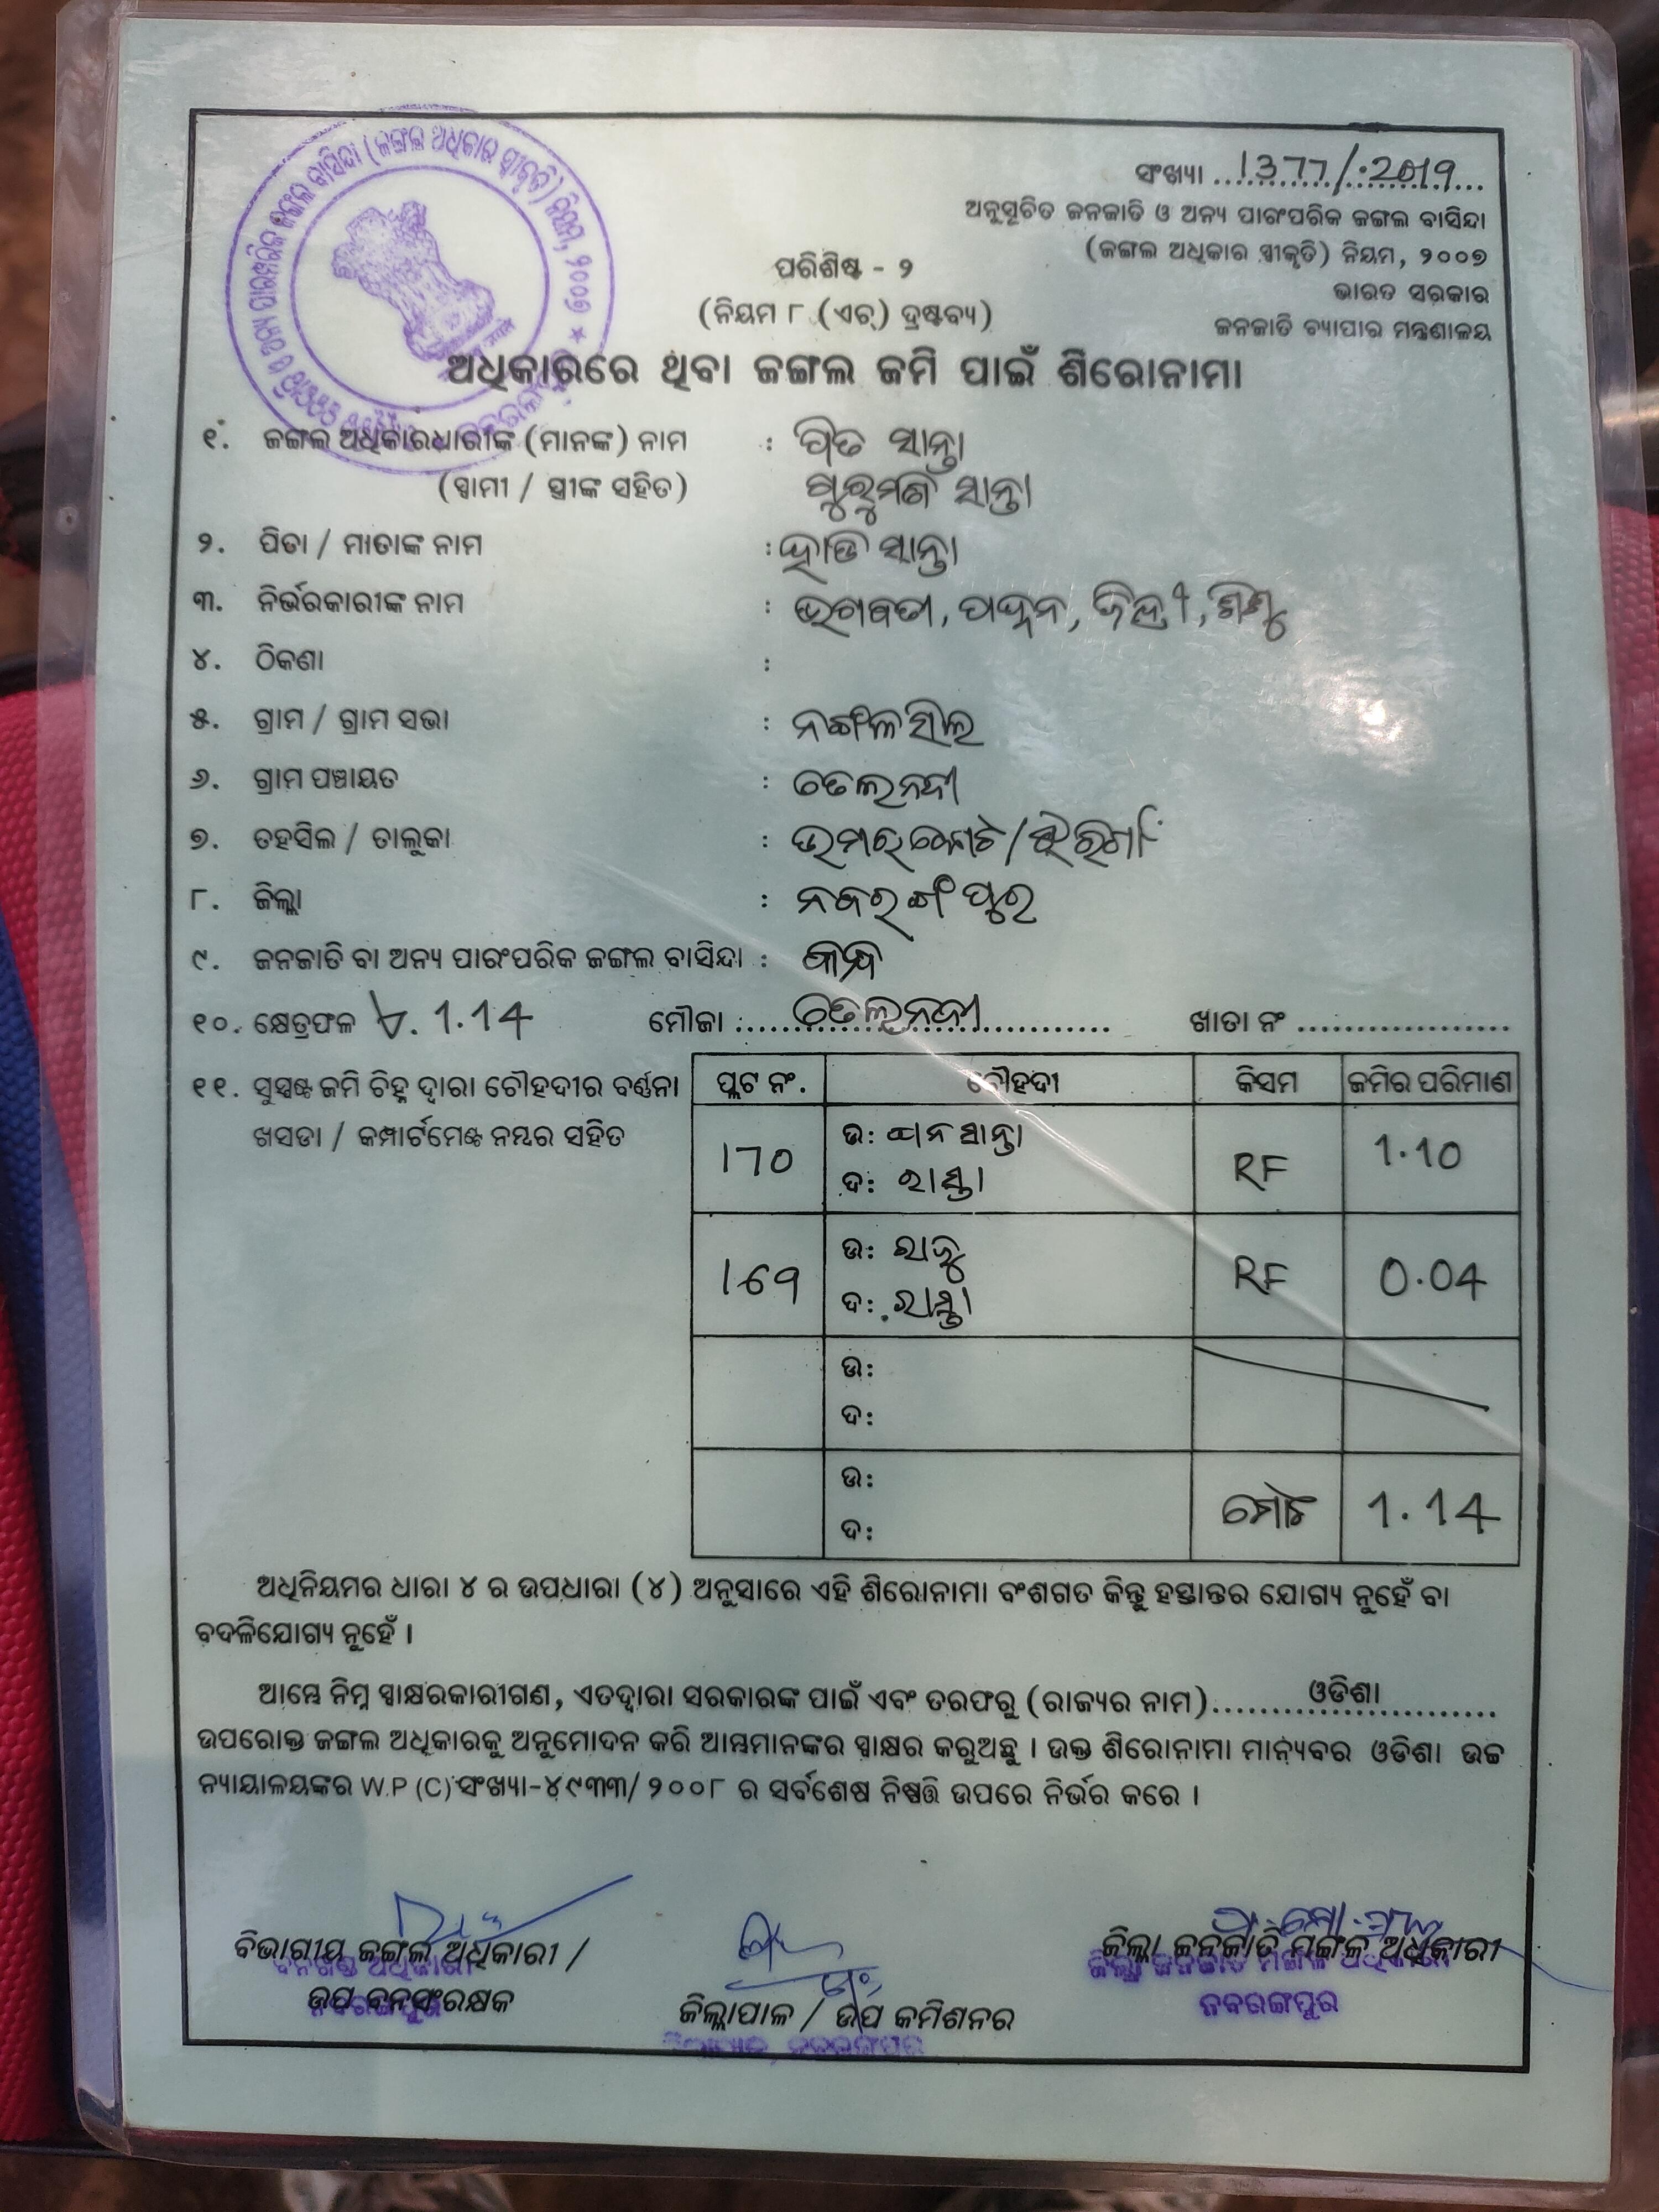 ସଂଖ୍ୟା 1377/2019
ଅନୁସୂଚିତ ଜନଜାତି ଓ ଅନ୍ୟ ପାରଂପରିକ ଜଙ୍ଗଲ ବାସିନ୍ଦା
(ଜଙ୍ଗଲ ଅଧିକାର ସ୍ୱୀକୃତି) ନିୟମ, ୨୦୦୭
ଭାରତ ସରକାର
ଜନଜାତି ବ୍ୟାପାର ମନ୍ତ୍ରଣାଳୟ
ପରିଶିଷ୍ଟ - ୨
(ନିୟମ ୮ (ଏଚ୍) ଦ୍ରଷ୍ଟବ୍ୟ)
ଅଧିକାରରେ ଥିବା ଜଙ୍ଗଲ ଜମି ପାଇଁ ଶିରୋନାମା
୧. ଜଙ୍ଗଲ ଅଧିକାରଧାରୀଙ୍କ (ମାନଙ୍କ) ନାମ : ସାନ୍ତା
(ସ୍ୱାମୀ / ସ୍ତ୍ରୀଙ୍କ ସହିତ) ଗୁରୁମଣି ସାନ୍ତା
୨. ପିତା / ମାତାଙ୍କ ନାମ : ସାନ୍ତା
୩. ନିର୍ଭରକାରୀଙ୍କ ନାମ : ଭଗବତୀ,
୪. ଠିକଣା :
୫. ଗ୍ରାମ / ଗ୍ରାମ ସଭା :
୬. ଗ୍ରାମ ପଞ୍ଚାୟତ : ତେଲନଦୀ
୭. ତହସିଲ / ତାଲୁକା : ଉମରକୋଟ/ଝରିଗାଁ
୮. ଜିଲ୍ଲା : ନବରଙ୍ଗପୁର
୯. ଜନଜାତି ବା ଅନ୍ୟ ପାରଂପରିକ ଜଙ୍ଗଲ ବାସିନ୍ଦା : କନ୍ଧ
୧୦. କ୍ଷେତ୍ରଫଳ ଏ. 1.14 ମୌଜା ତେଲନଦୀ ଖାତା ନଂ
୧୧. ସୁସ୍ପଷ୍ଟ ଜମି ଚିହ୍ନ ଦ୍ୱାରା ଚୌହଦୀର ବର୍ଣ୍ଣନା
ଖସଡା / କମ୍ପାର୍ଟମେଣ୍ଟ ନମ୍ବର ସହିତ
ପ୍ଲଟ ନଂ. ଚୌହଦୀ କିସମ ଜମିର ପରିମାଣ
170 ଉ: ସାନ୍ତା RF 1.10
ଦ: ରାସ୍ତା
169 ଉ: ରାଜୁ RF 0.04
ଦ: ରାସ୍ତା
ଉ:
ଦ:
ଉ: ମୋଟ 1.14
ଦ:
ଅଧିନିୟମର ଧାରା ୪ ର ଉପଧାରା (୪) ଅନୁସାରେ ଏହି ଶିରୋନାମା ବଂଶଗତ କିନ୍ତୁ ହସ୍ତାନ୍ତର ଯୋଗ୍ୟ ନୁହେଁ ବା
ବଦଳିଯୋଗ୍ୟ ନୁହେଁ ।
ଆମ୍ଭେ ନିମ୍ନ ସ୍ୱାକ୍ଷରକାରୀଗଣ, ଏତଦ୍ୱାରା ସରକାରଙ୍କ ପାଇଁ ଏବଂ ତରଫରୁ (ରାଜ୍ୟର ନାମ) ଓଡିଶା
ଉପରୋକ୍ତ ଜଙ୍ଗଲ ଅଧିକାରକୁ ଅନୁମୋଦନ କରି ଆମ୍ଭମାନଙ୍କର ସ୍ୱାକ୍ଷର କରୁଅଛୁ । ଉକ୍ତ ଶିରୋନାମା ମାନ୍ୟବର ଓଡିଶା ଉଚ୍ଚ
ନ୍ୟାୟାଳୟଙ୍କର W.P (C) ସଂଖ୍ୟା-୪୯୩୩/୨୦୦୮ ର ସର୍ବଶେଷ ନିଷ୍ପତ୍ତି ଉପରେ ନିର୍ଭର କରେ ।
ବିଭାଗୀୟ ଜଙ୍ଗଲ ଅଧିକାରୀ /
ଉପ ବନସଂରକ୍ଷକ
ଜିଲ୍ଲାପାଳ / ଉପ କମିଶନର
ଜିଲ୍ଲା ଜନଜାତି ମଙ୍ଗଳ ଅଧିକାରୀ
ନବରଙ୍ଗପୁର